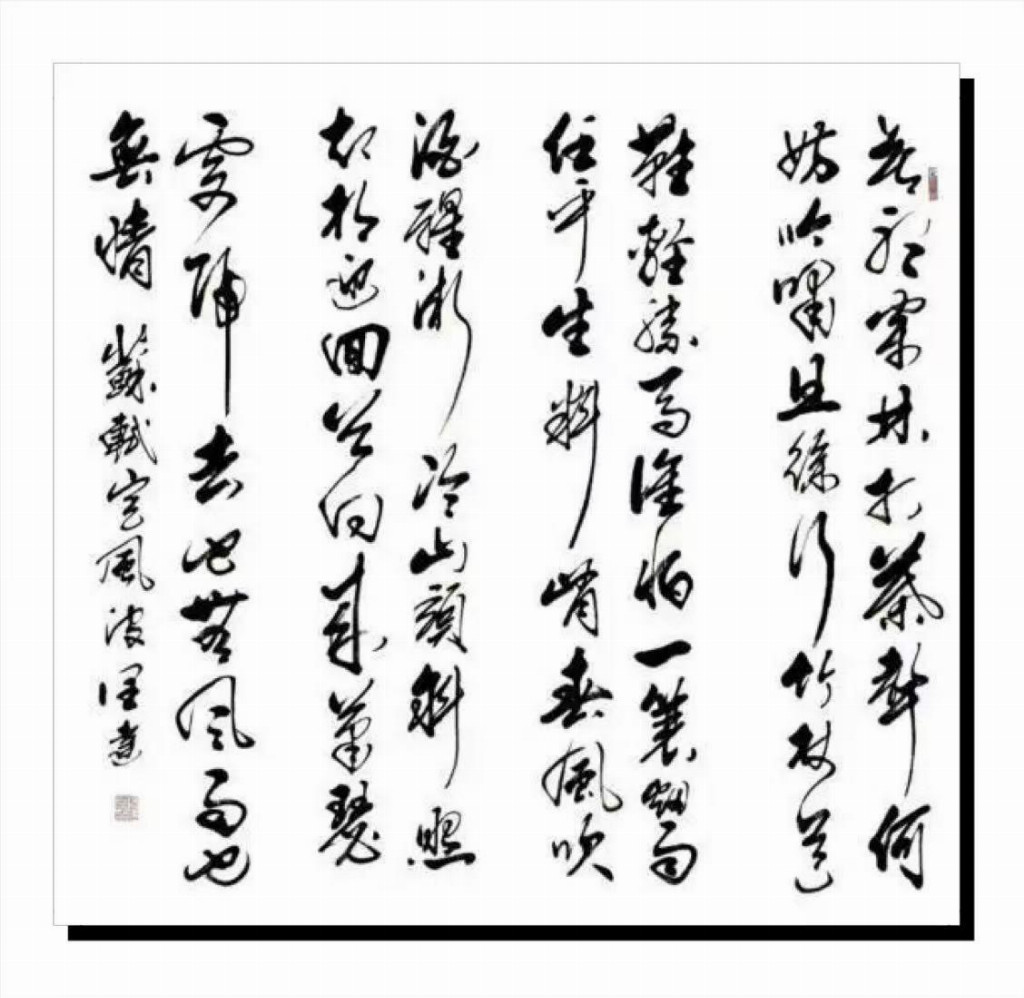 莫聽穿林打葉聲何
妨吟嘯且徐行竹杖芒
鞋輕勝馬誰怕一蓑烟雨
任平生料峭春風吹
酒醒微冷山頭斜照
却相迎回首向來蕭瑟
處歸去也無風雨也
無情 蘇軾定風波